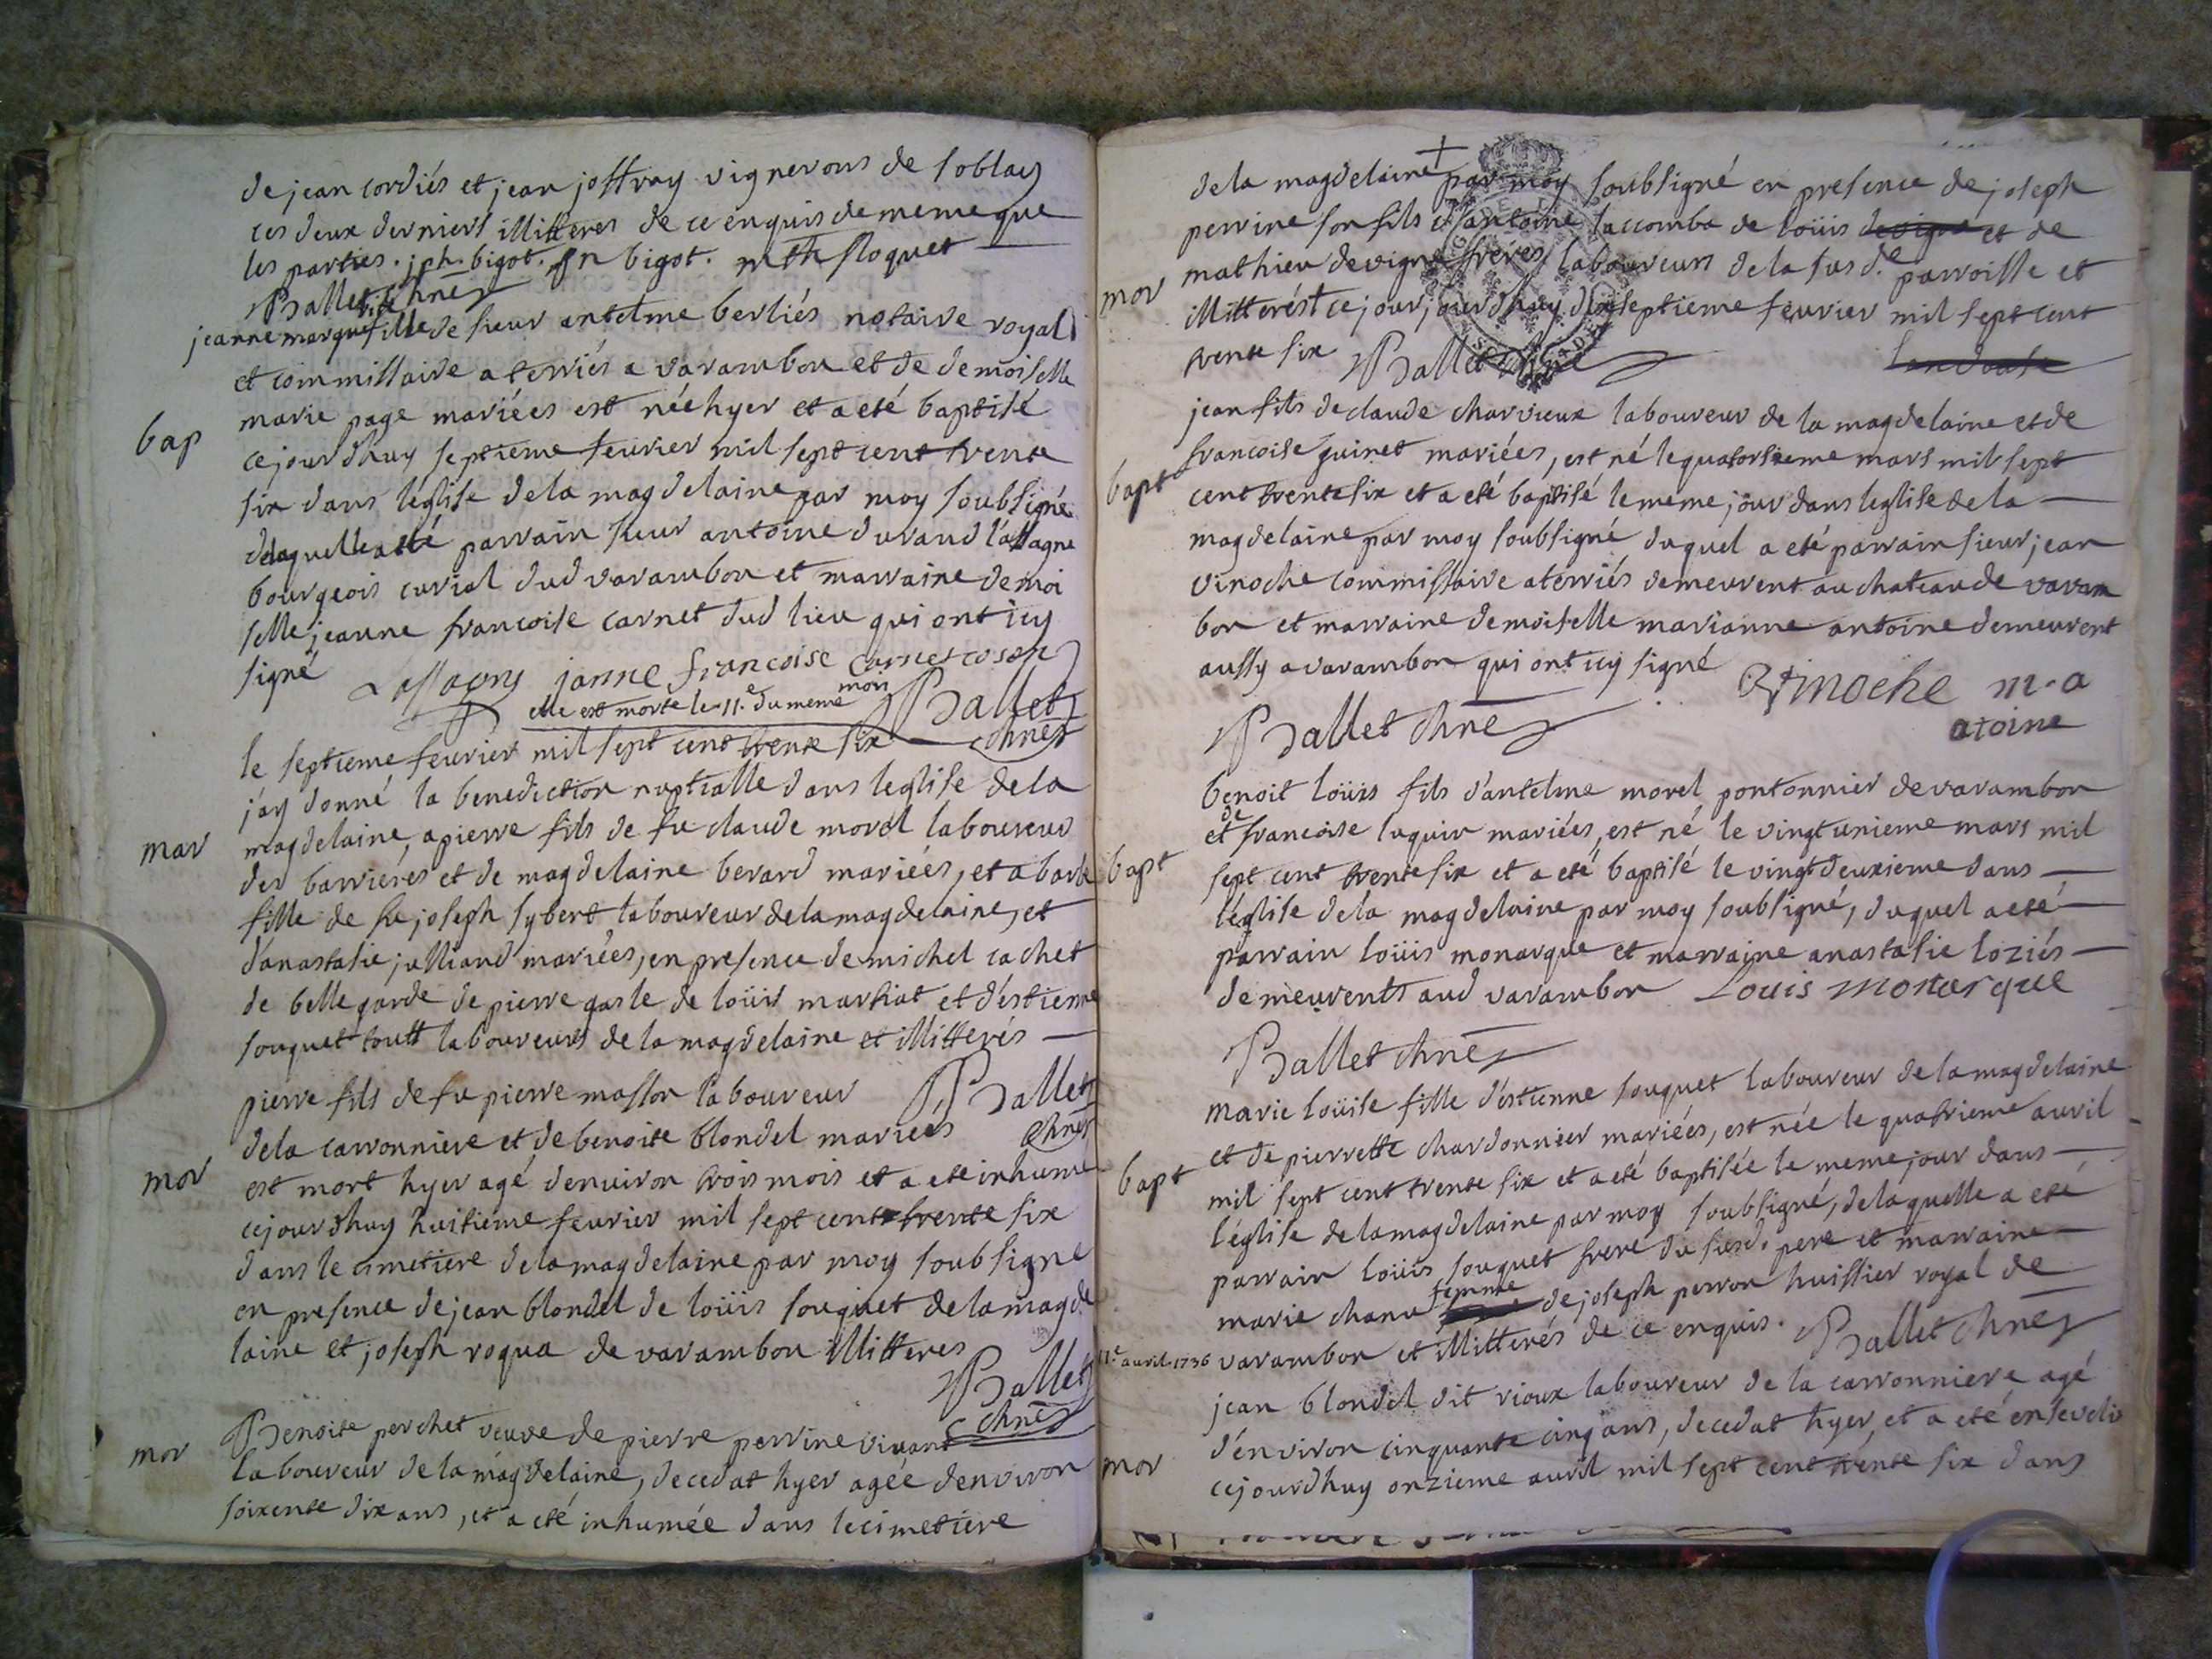 de jean cordiés et jean joffray vignerons de soblay
ces deux derniers illitteres de ce enquis de meme que
les parties. jph. bigot. bigot. mth floquet
Ballet chne
jeanne marque fille de sieur antelme berliés notaire royal
et commissaire a terriés a varambon et de demoiselle
marie page mariées est née hyer et a eté baptisé
bap
cejourdhuy septieme feurier mil sept cent trente
six dans leglise dela magdelaine par moy soubsigné
delaquelle a eté parrain sieur antoine durand lassagne
bourgeois curial dud varambon et marraine demoi
selle jeanne francoise carnet dud lieu qui ont icy
signé Lassagny janne francoise carnet
elle est morte le 11.e du meme mois Ballet
chne
le septieme feurier mil sept cent trente six
jay donné la benediction nuptialle dans leglise dela
mar
magdelaine, a pierre fils de fu claude morel laboureur
des barriérés et de magdelaine berard mariées, et a barbe
fille de fu joseph sybert laboureur delamagdelaine, et
d'anastasie julliand mariées, en presence de michel cachet
de belle garde de pierre gasle de loüis martiat et d'estienne
souquet toutt laboureurs de la magdelaine et illitterés
pierre fils de fu pierre masson laboureur Ballet
dela carronniere et de benoite blondel mariées chne
mor
est mort hyer agé denuiron trois mois et a eté inhumé
cejourdhuy huitieme feurier mil sept cent trente six
dans le cimetiere delamagdelaine par moy soubsigné
en presence de jean blondel de loüis souquet de lamagde
laine et joseph roqua de varambon illitteres
Ballet
chne
mor
Benoite perchet veuve de pierre perrine vivant
laboureur de la magdelaine, decedat hyer agée denviron
soixente dix ans, et a eté inhumée dans le cimetiere
dela magdelaine par moy soubsigné en presence de joseph
perrine son fils d'antoine laccomba de loüis devigne et de
mor
mathieu devigne fréres laboureurs dela susd.e parroisse et
illitterés ce jour jourdhuy dixseptieme feurier mil sept cent
trente six Ballet chne
jean fils de claude charvieux laboureur de la magdelaine et de
francoise guinet mariées, est né le quatorsieme mars mil sept
bapt
cent trente six et a eté baptisé le meme jour dans leglise de la
magdelaine par moy soubsigné duquel a eté parrain sieur jean
vinoche commissaire a terriés demeurent au chateau de varam
bon et marraine demoiselle marianne antoine demeurent
aussy a varambon qui ont icy signé Vinoche m.a
atoine
Ballet chne
benoit loüis fils d'antelme morel pontonnier de varambon
et de francoise luquin mariées, est né le vingt unieme mars mil
bapt
sept cent trente six et a eté baptisé le vingt deuxieme dans
l'église dela magdelaine par moy soubsigné, duquel a eté
parrain loüis monarque et marraine anastasie loziés
demeurents aud varambon Louis monarque
Ballet chne
marie loüise fille d'estienne souquet laboureur de la magdelaine
et de pierrette chardonnier mariées, est née le quatrieme auril
bapt
mil sept cent trente six et a eté baptisée le meme jour dans
l'église delamagdelaine par moy soubsigné, delaquelle a eté
parrain loüis souquet frere du susd. pere et marraine
marie chanu femme de joseph perron huissier royal de
11.e auril 1736 varambon et illitterés de ce enquis. Ballet chne
jean blondel dit rioux laboureur de la carronniere agé
d'environ cinquante cinq ans, decedat hyer, et a eté enseveli
mor
cejourdhuy onzieme auril mil sept cent trente six dans